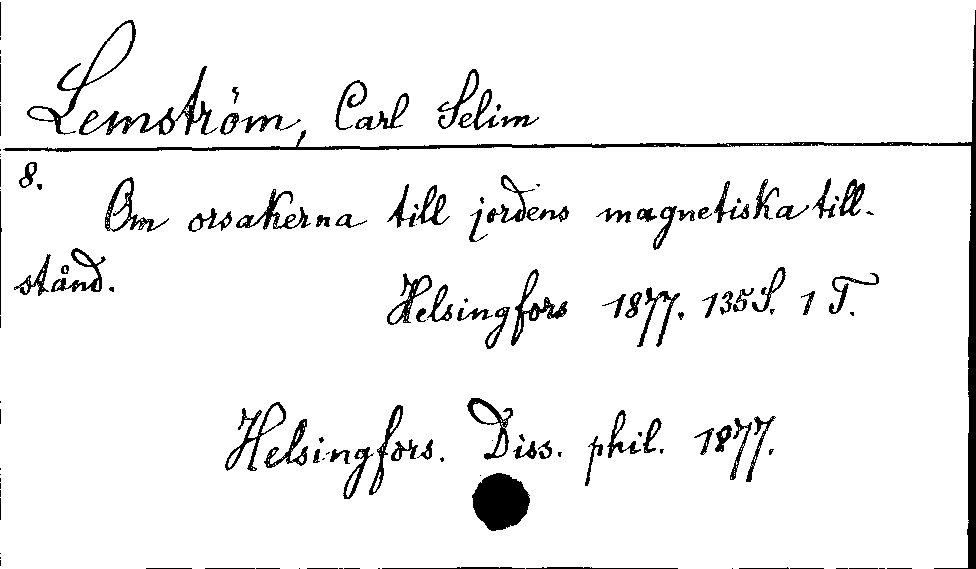 Lemström, Carl Selim
8.
Om orsakerna till jordens magnetiska till-
stånd.
Helsingfors 1877. 135 S. 1 T.
Helsingfors. Diss. phil. 1877.